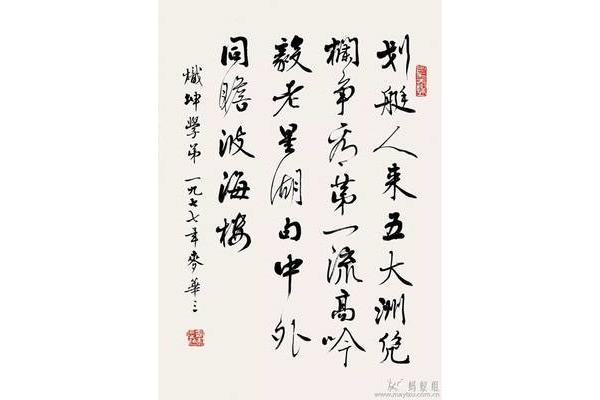 划艇人来五大洲凭
欄争看第一流高吟
毅老星湖句中外
同瞻波海楼
熾坤學弟 一九七七年麥華三
蚂蚁组
www.mayizu.com.cn